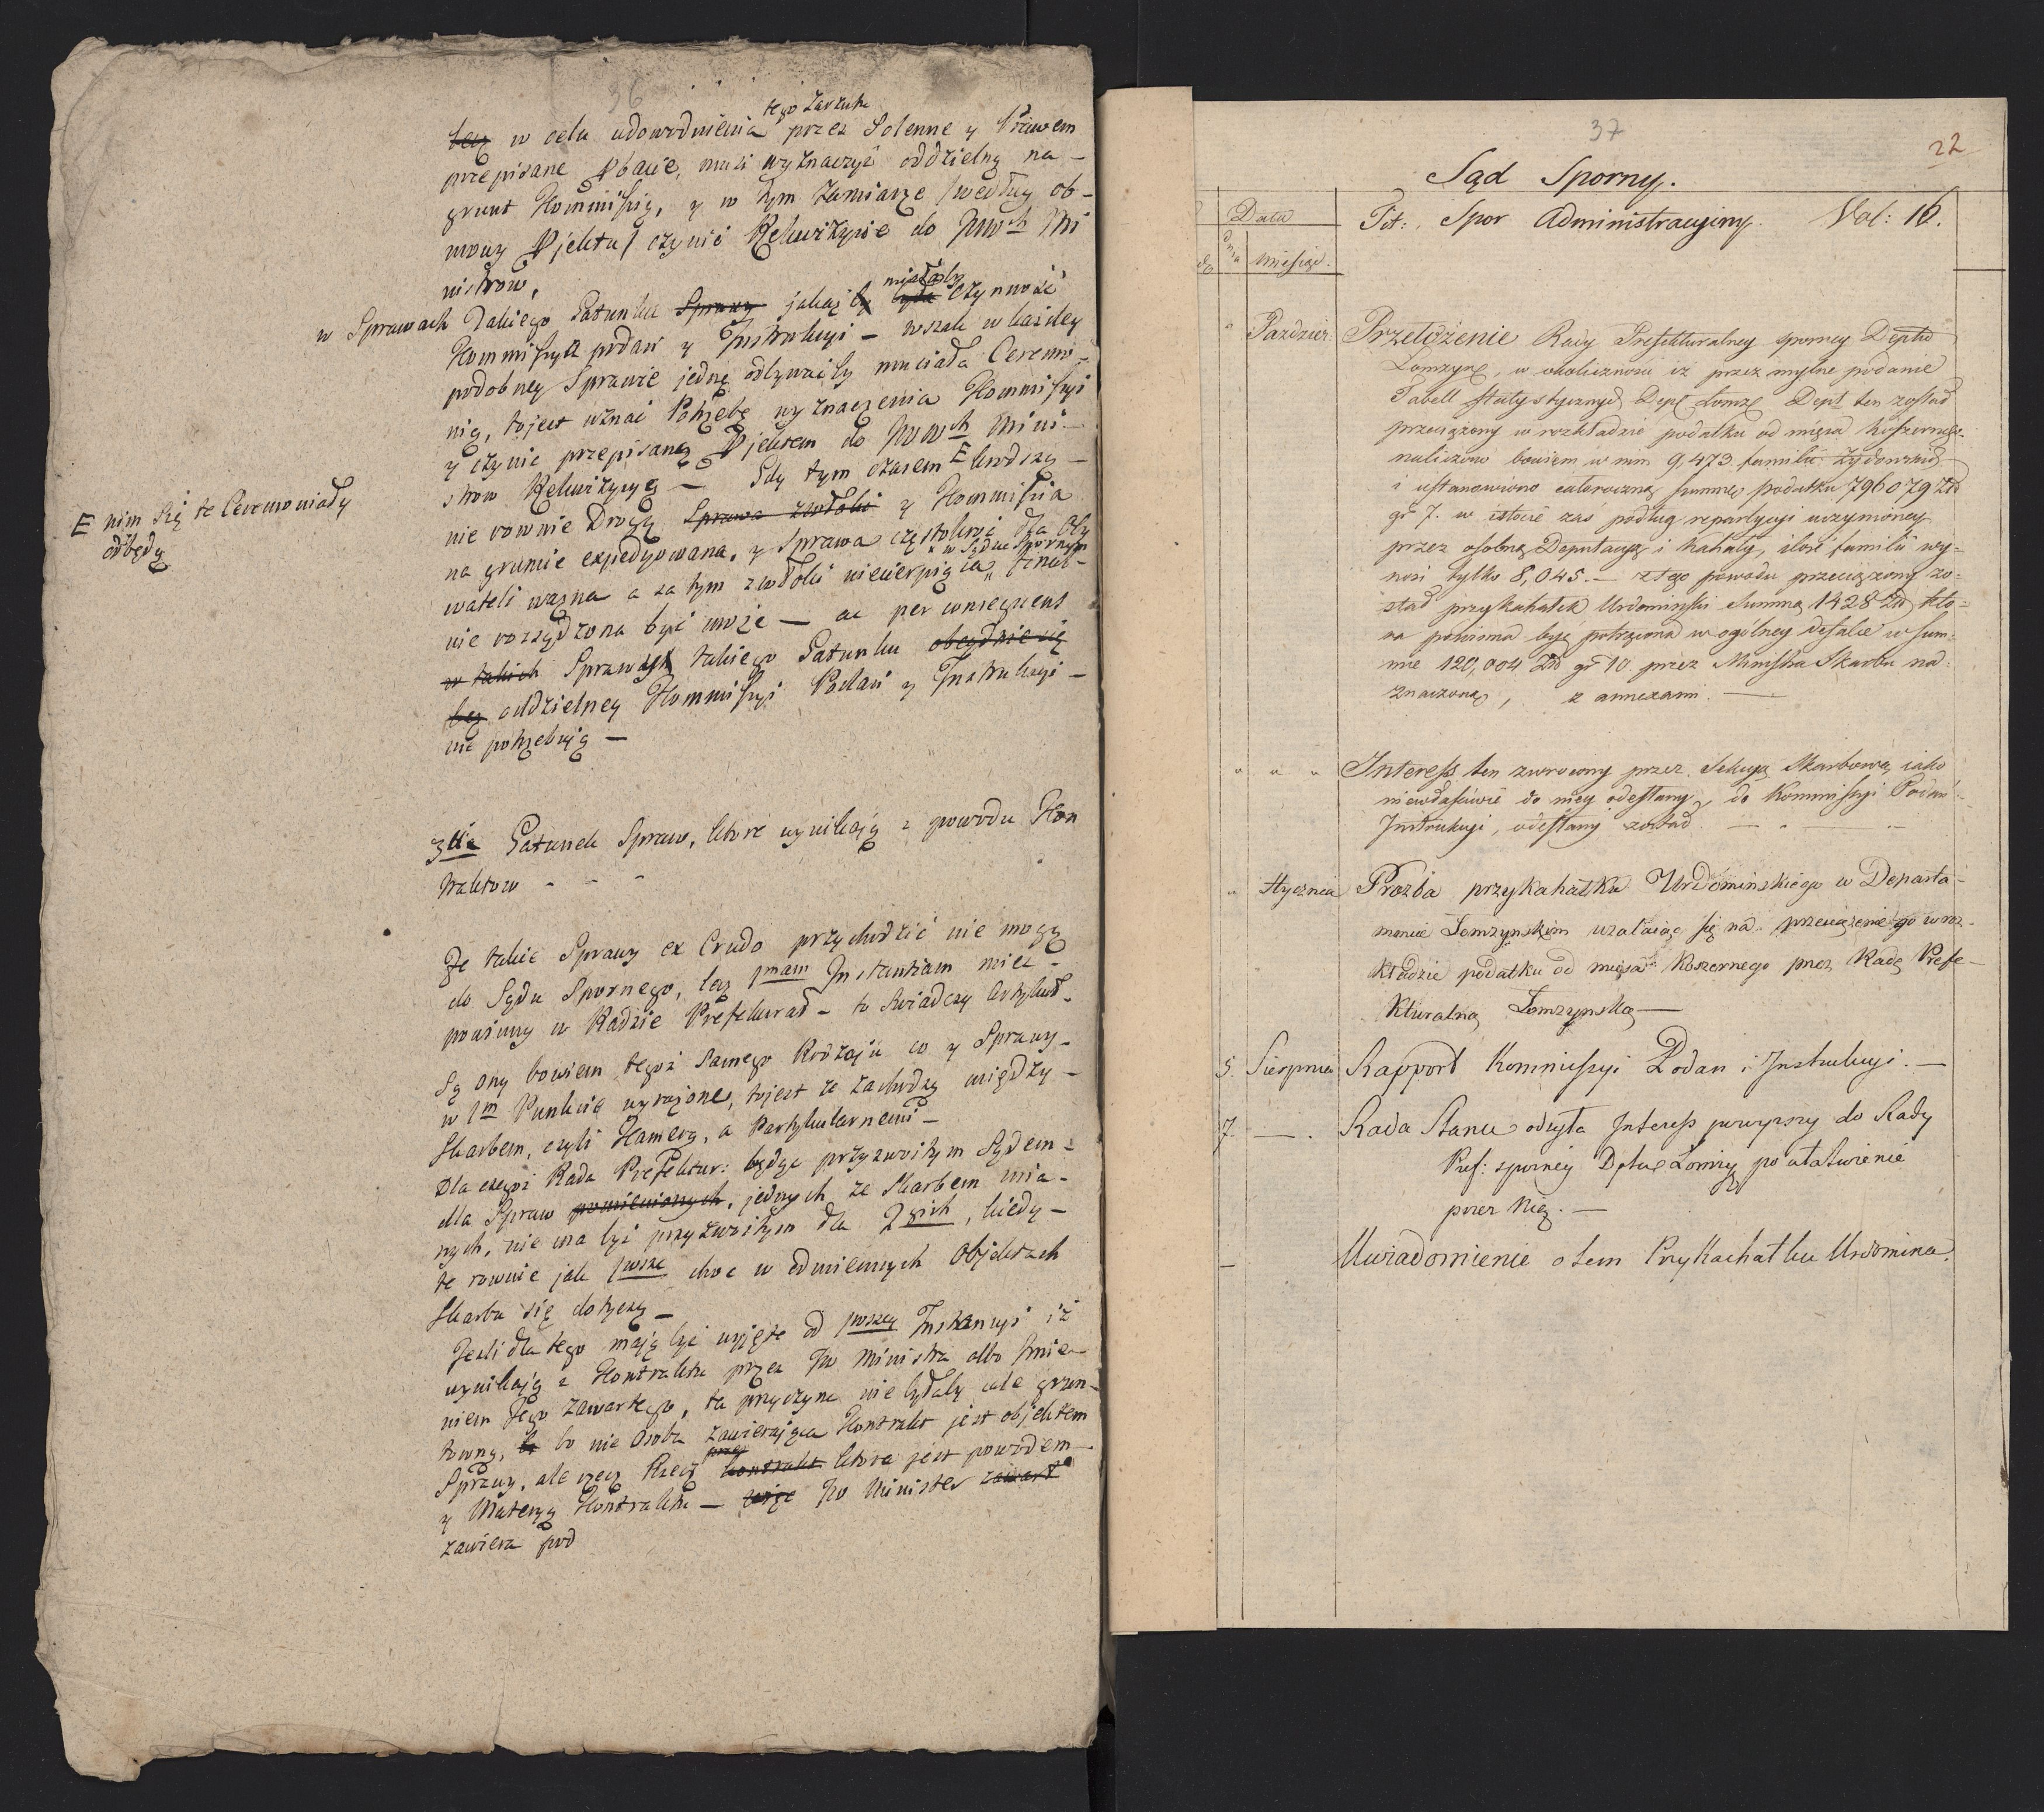 36
tego Zarzutu
lecz w celu udowodnienia przez Solenne y Prawem
przepisane Obacie, musi wyznaczyć oddzielną na-
grunt Kommissią, y w tym zamiarze /według ob-
mowy Objektu/ czynić Rekwizycie do JWWch Mi
nistrow,
w Sprawach Takiego Gatunku Sprawy jakąż by miałaby była czynność
Kommissya podań y Instrukcyi - wszak w każdey
podobney Sprawie jedną odbywać by musiała Ceremo-
nią, to jest uznać Potrzebę wyznaczenia Kommissyi
y czynić przepisaną Objektem do JWWch Mini-
strow Rekwizycyą — Gdy tym czasem E krodszą -
E nim się te Ceremoniały
odbędą
nie rownie Drogą Sprawa zwłoki y Kommissia
na gruncie expedyowana, y Sprawa częstokroć dla Oby
wateli ważna a za tym zwłoki niecierpiąca, w Sądzie Spornym finał-
nie rozsądzona być może — ac per consequens
w takich Sprawy takiego Gatunku obeydzie się
bez oddzielney Kommissyi Podań y Instrukcyi -
nie potrzebują —
3cie Gatunek Spraw, ktore wynikają z powodu Kon
traktow - - -
Że takie Sprawy ex Crudo przychodzić nie mogą
do Sądu Spornego, lecz 1mam Instantiam miec -
powinny w Radzie Prefektur - to Swiadczy Artykuł -
Są ony bowiem tegoż Samego Rodzaju co y Sprawy -
w 1m Punkcie wyrażone, to jest że zachodzą między -
Skarbem, czyli Kamerą, a Partykularnemi -
Dla czegoż Rada Prefektur: będąc przyzwoitym Sądem -
dla Spraw pomienionych, jednych ze Skarbem mia -
nych, nie ma być przyzwoitym dla 2gich, kiedy -
te rownie jak 1wsze choc w odmiennych Objektach
Skarbu się dotyczą —
Jeżli dla tego mają być wyjęte od 1wszey Instancyi iż
wynikają z Kontraktu przez JW Ministra albo Imie-
niem Jego zawartego, ta przyczyna nie byłaby ale grun-
towną, bo nie Osoba zawierająca Kontrakt jest objektem
Sprawy, ale rzecz Kontrakt ktora jest powodem -
y Materyą Kontraktu — JW Minister zawarł
zawiera pod
37
22
Sąd Sporny.
Data
Tit: Spor Administracyiny. Vol: 16.
Dnia Miesiąc.
" Paździer: Przełożenie Rady Prefekturalney sporney Depttu
Łomzyńe, w okoliczności iż przez mylne podanie
Tabell statystycznych Dept Łomże Dept ten został
przeciążony w rozkładzie podatku od mięsa koszernego.
naliczono bowiem w nim 9,473. familii żydowskich
i ustanowiono całoroczną summę podatku 796079 Złł
gr 7. w istocie zaś podług repartycyi uczynioney
przez osobną Deputacyą i Kahały, ilość familii wy-
nosi tylko 8,045. — z tego powodu przeciążony zo-
stał przykahałek Urdominski Summą 1428 Złł, któ-
ra powinna być potrącona w ogólney defalce w sum-
mie 120,004 Złł gr 10. przez Ministra Skarbu na-
znaczoną, z annexami. —
" " " Interess ten zwrocony przez Sekcyą Skarbową iako
niewłaściwie do niey odesłany, do Kommissyi Podań
Instrukcyi, odesłany został. —
" Stycznia Prozba przykahałku Urdominskiego w Departa-
mencie Łomzynskim uzalaiąc się na przeciążenie go w roz-
kładzie podatku od mięsa Koszernego przez Radę Prefe-
kturalną Łomzynską —
5. Sierpnia Rapport Kommissyi Podan i Instrukcyi. —
7. — . Rada Stanu odsyła Interess powyższy do Rady
Pref: sporney Dptu Łomży po ułatwienie
przez Nię. —
— Uwiadomienie o tem Przykachałku Urdomina.